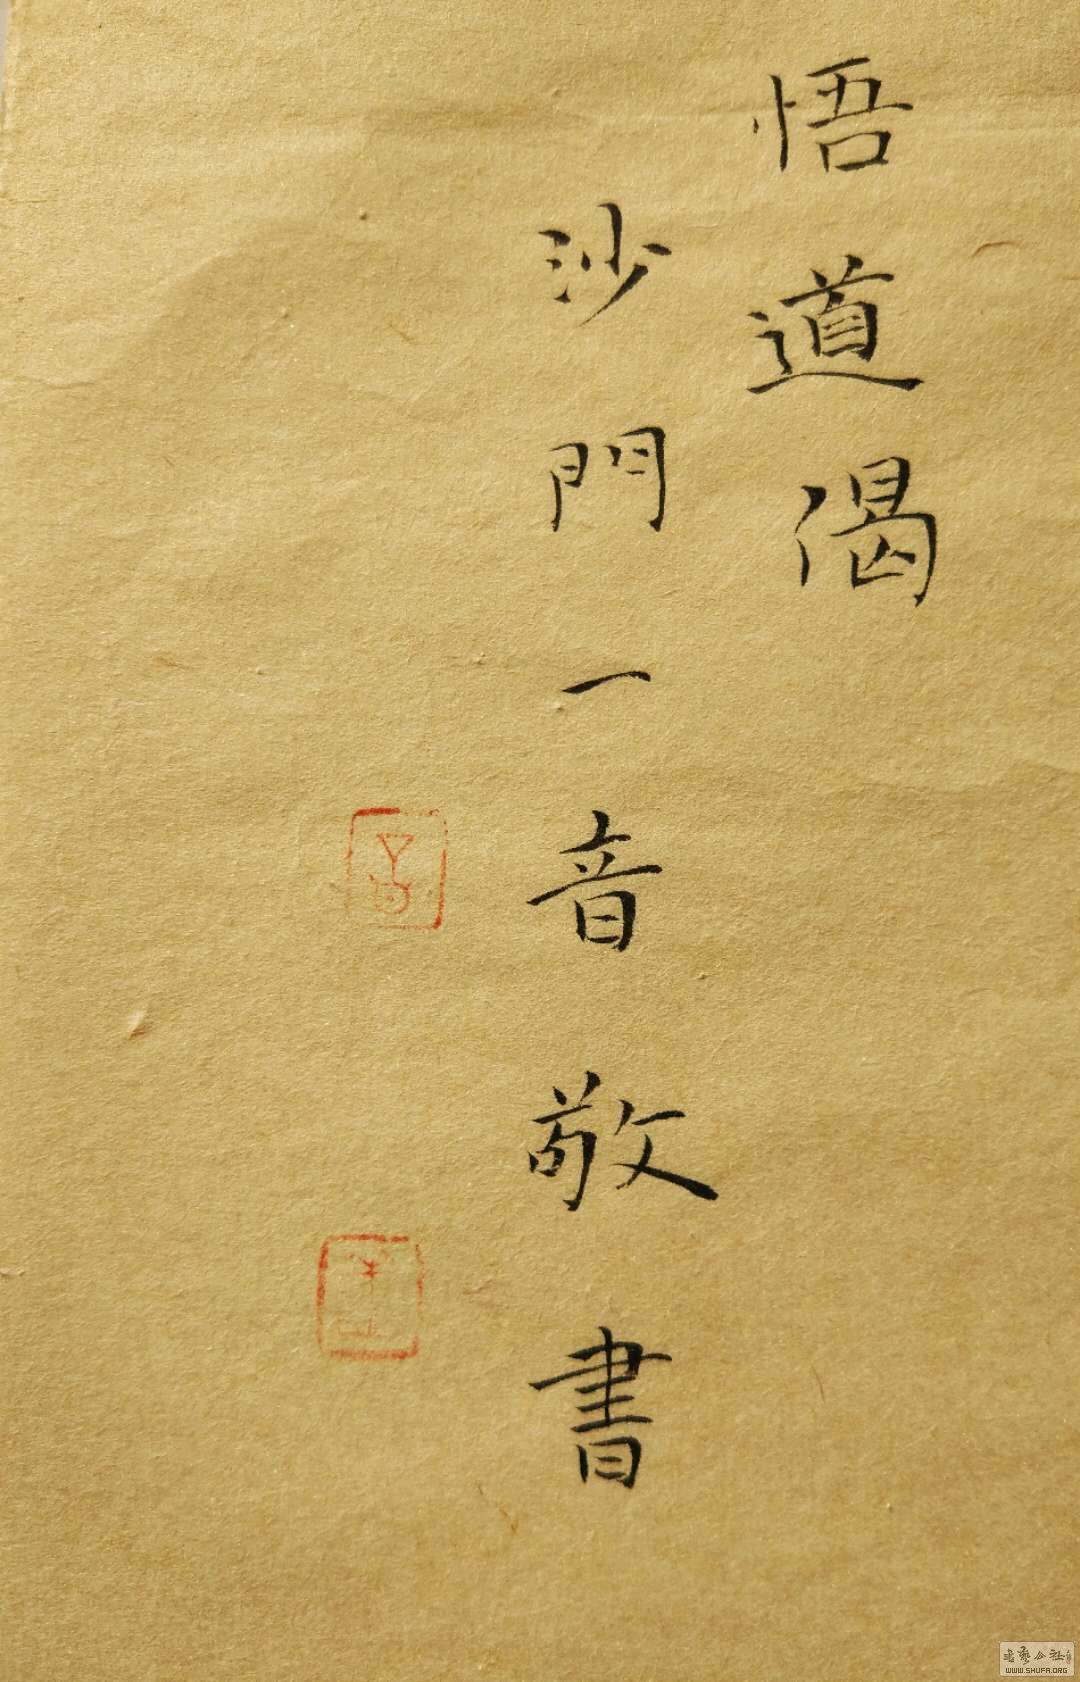 悟道偈
沙門一音敬書
书艺公社
WWW.SHUFA.ORG